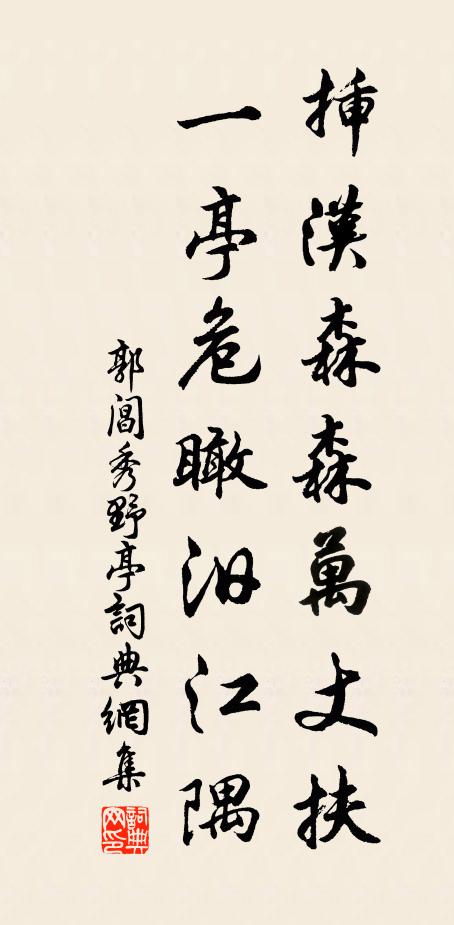 插漢森森萬丈扶
一亭危瞰汾江隅
郭閶秀野亭詞典網集
詞典網印